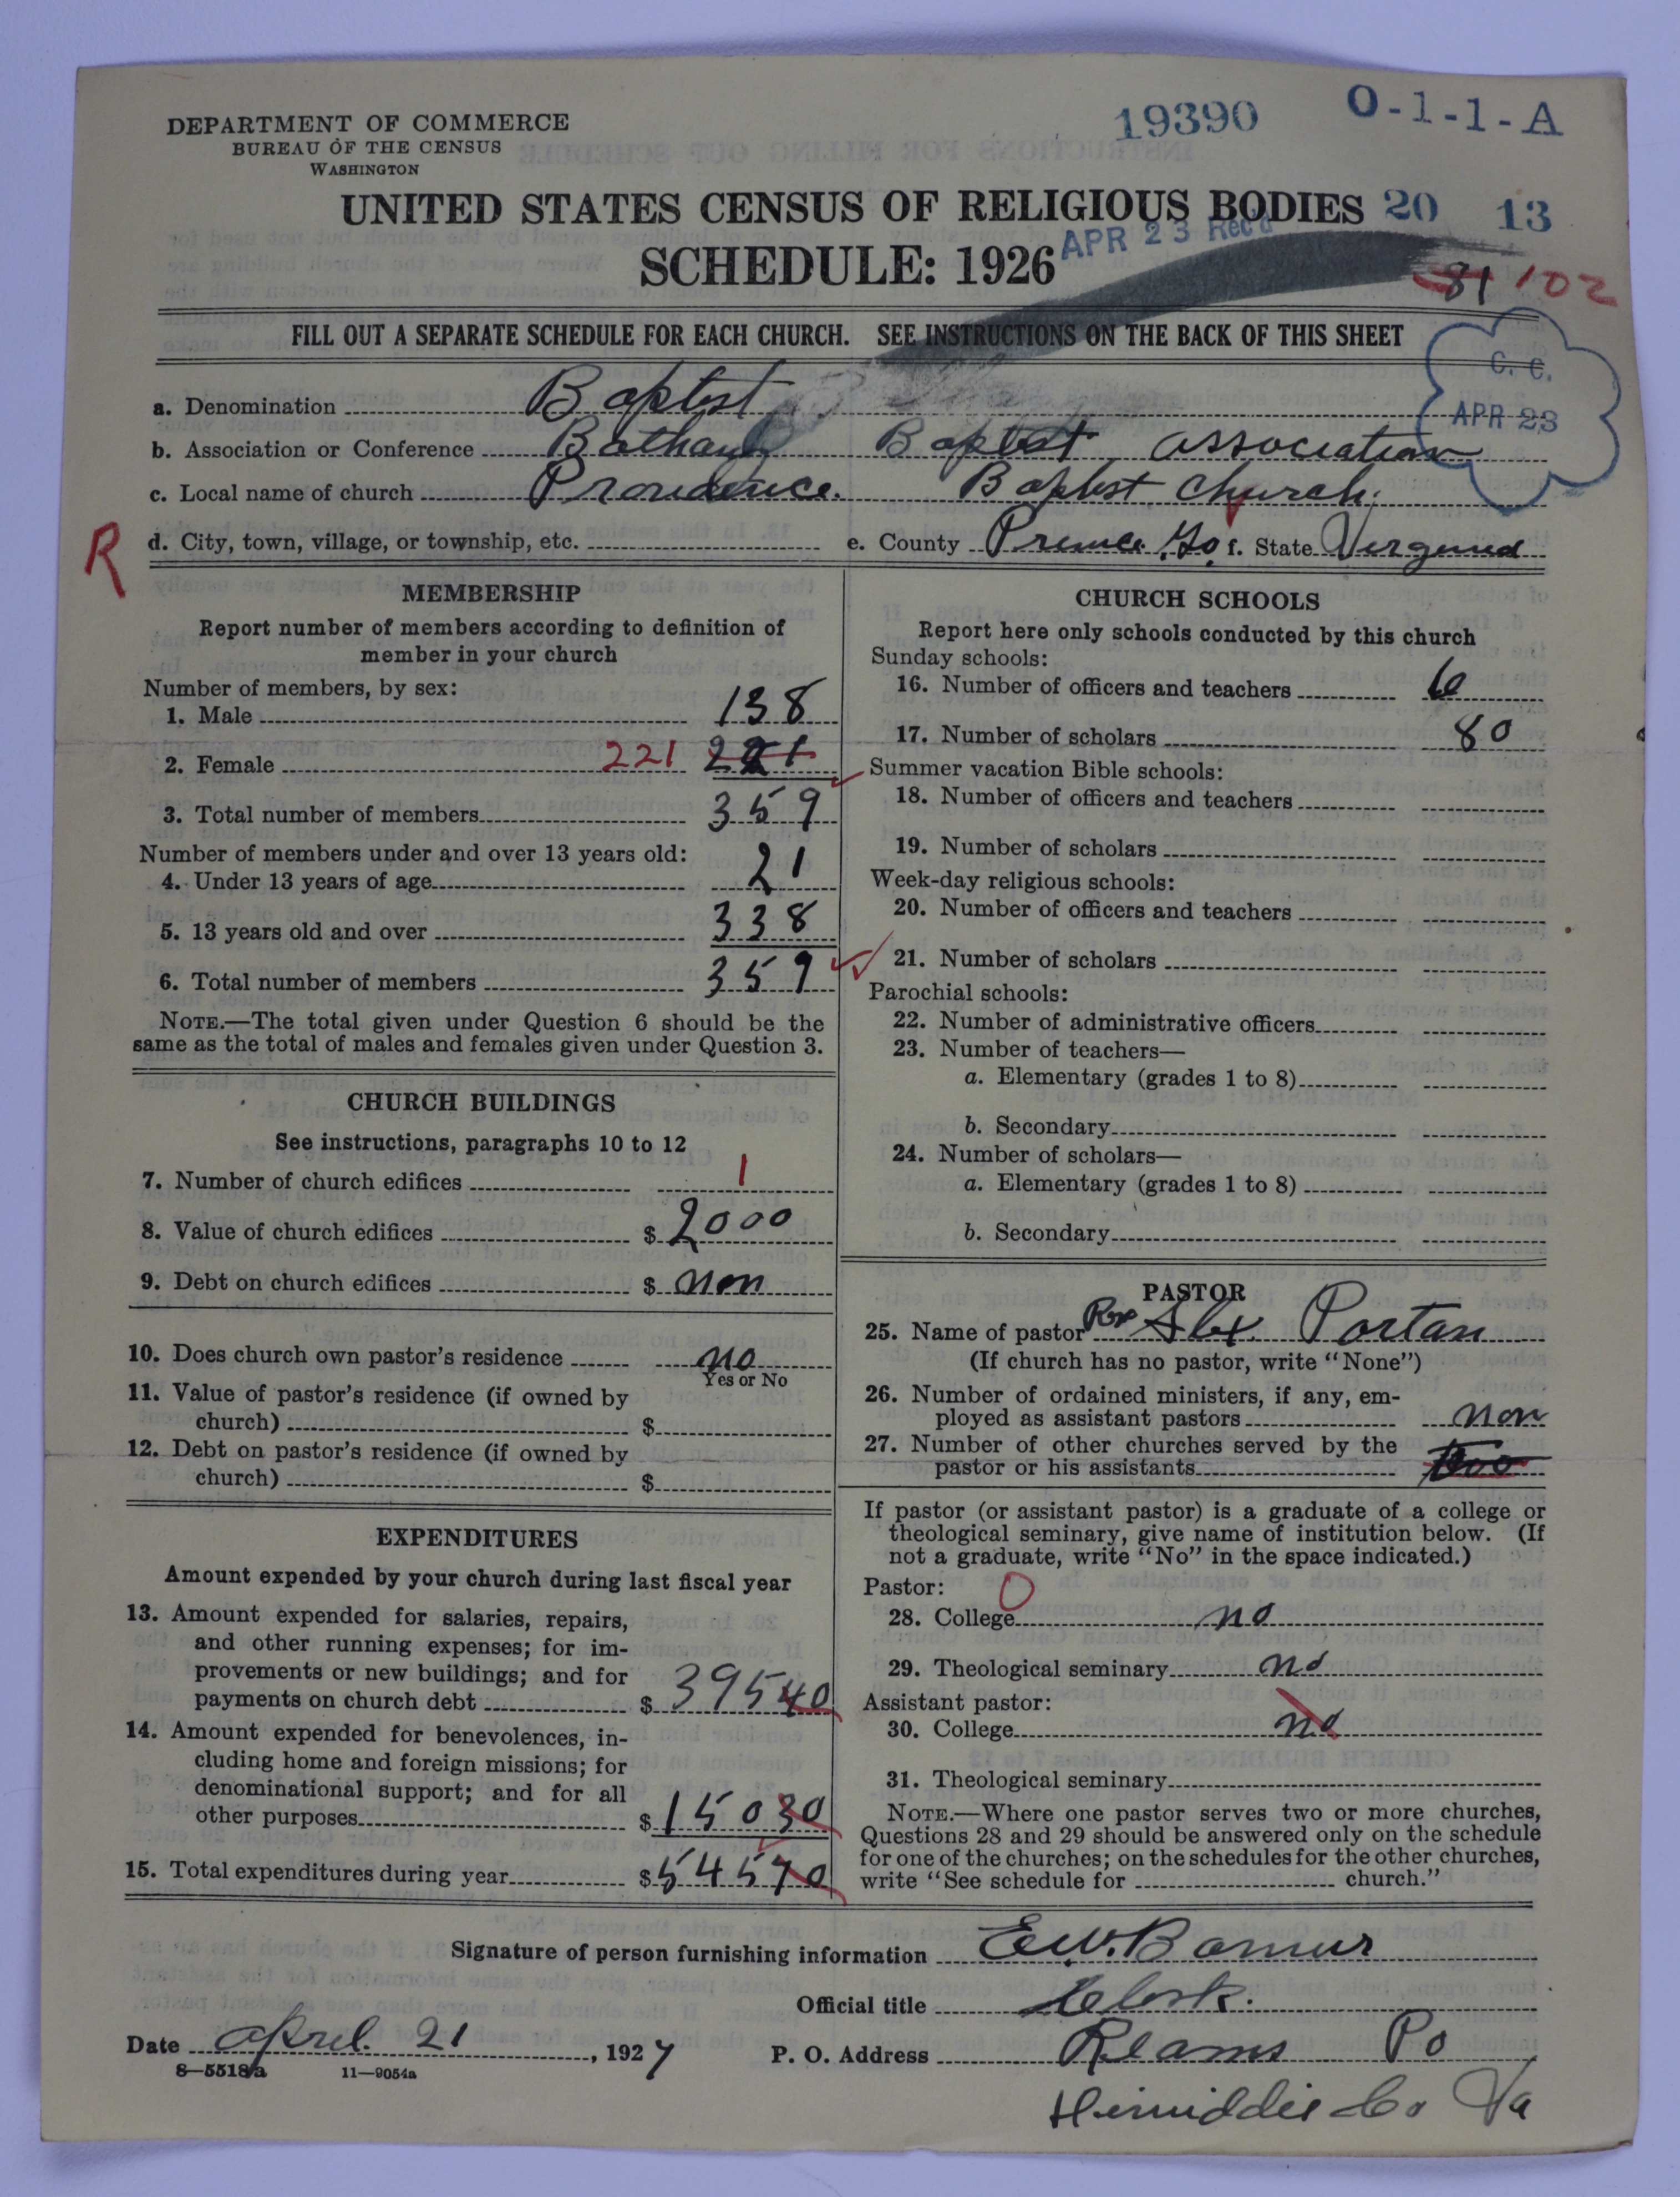 19390 O-1-1-A
DEPARTMENT OF COMMERCE
BUREAU OF THE CENSUS
WASHINGTON
UNITED STATES CENSUS OF RELIGIOUS BODIES 20 13
SCHEDULE: 1926 APR 23 Rec'd
81 102
FILL OUT A SEPARATE SCHEDULE FOR EACH CHURCH. SEE INSTRUCTIONS ON THE BACK OF THIS SHEET
C. C.
APR 23
a. Denomination Baptist
b. Association or Conference Bathany Baptist association
c. Local name of church Providence Baptist Church.
R d. City, town, village, or township, etc. e. County Prince Go. f. State
MEMBERSHIP
Report number of members according to definition of
member in your church
Number of members, by sex:
1. Male 138
2. Female 221 221
3. Total number of members 359
Number of members under and over 13 years old:
4. Under 13 years of age 21
5. 13 years old and over 338
6. Total number of members 359
NOTE.—The total given under Question 6 should be the
same as the total of males and females given under Question 3.
CHURCH BUILDINGS
See instructions, paragraphs 10 to 12
7. Number of church edifices 1
8. Value of church edifices $ 2000
9. Debt on church edifices $ non
10. Does church own pastor's residence no
Yes or No
11. Value of pastor's residence (if owned by
church) $
12. Debt on pastor's residence (if owned by
church) $
EXPENDITURES
Amount expended by your church during last fiscal year
13. Amount expended for salaries, repairs,
and other running expenses; for im-
provements or new buildings; and for
payments on church debt $ 39540
14. Amount expended for benevolences, in-
cluding home and foreign missions; for
denominational support; and for all
other purposes $ 15030
15. Total expenditures during year $ 54570
CHURCH SCHOOLS
Report here only schools conducted by this church
Sunday schools:
16. Number of officers and teachers 6
17. Number of scholars 80
Summer vacation Bible schools:
18. Number of officers and teachers
19. Number of scholars
Week-day religious schools:
20. Number of officers and teachers
21. Number of scholars
Parochial schools:
22. Number of administrative officers
23. Number of teachers—
a. Elementary (grades 1 to 8)
b. Secondary
24. Number of scholars—
a. Elementary (grades 1 to 8)
b. Secondary
PASTOR
25. Name of pastor Rev Alex. Portan
(If church has no pastor, write "None")
26. Number of ordained ministers, if any, em-
ployed as assistant pastors non
27. Number of other churches served by the
pastor or his assistants two
If pastor (or assistant pastor) is a graduate of a college or
theological seminary, give name of institution below. (If
not a graduate, write "No" in the space indicated.)
Pastor: O
28. College no
29. Theological seminary no
Assistant pastor:
30. College no
31. Theological seminary
NOTE.—Where one pastor serves two or more churches,
Questions 28 and 29 should be answered only on the schedule
for one of the churches; on the schedules for the other churches,
write "See schedule for church."
Signature of person furnishing information E.W.
Official title Clerk.
Date April. 21, 1927 P. O. Address Reams Po
8—5518a 11—9054a
Co Va